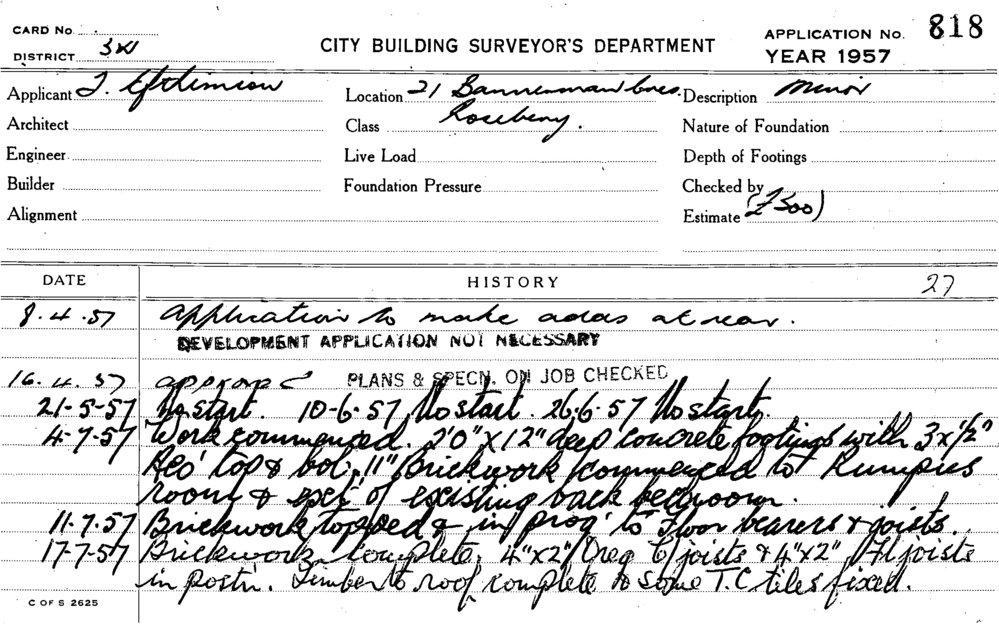 CARD No.
DISTRICT 3XI
CITY BUILDING SURVEYOR'S DEPARTMENT
APPLICATION No. 818
YEAR 1957
Applicant J. Efthimiou
Location 21 Bannerman Cres.
Description Minor
Architect
Class Rosebery.
Nature of Foundation
Engineer
Live Load
Depth of Footings
Builder
Foundation Pressure
Checked by
Alignment
Estimate (£500)
DATE HISTORY 27
8.4.57 Application to make adds at rear.
DEVELOPMENT APPLICATION NOT NECESSARY
16.4.57 approved PLANS & SPECN. ON JOB CHECKED
21-5-57 No start. 10-6-57 No start. 26-6-57 No start.
4-7-57 Work commenced. 2'0" X 12" deep concrete footings with 3 x 1/2"
Reo' top & bot, 11" Brickwork commenced to Rumpus
room & ext' of existing back bedroom.
11-7-57 Brickwork topped & in prog' to Floor bearers & joists.
17-7-57 Brickwork complete, 4"X2" Oreg C/joists & 4"X2" Fl joists
in postn. Timber to roof complete & some T.C tiles fixed.
C OF S 2625